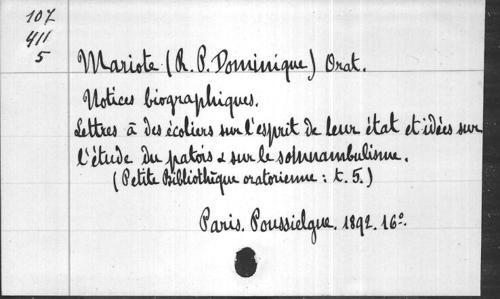 107
411
5
Mariote (R. P. Dominique) Orat.
Notices biographiques.
Lettres à des écoliers sur l'esprit de leur état et idées sur
l'étude du patois & sur le somnambulisme.
(Petite Bibliothèque oratorienne : t. 5.)
Paris. Poussielgue. 1892. 16º.